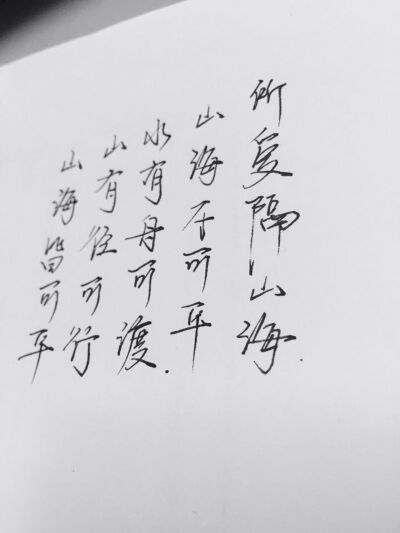 所爱隔山海.
山海不可平
水有舟可渡.
山有径可行
山海皆可平